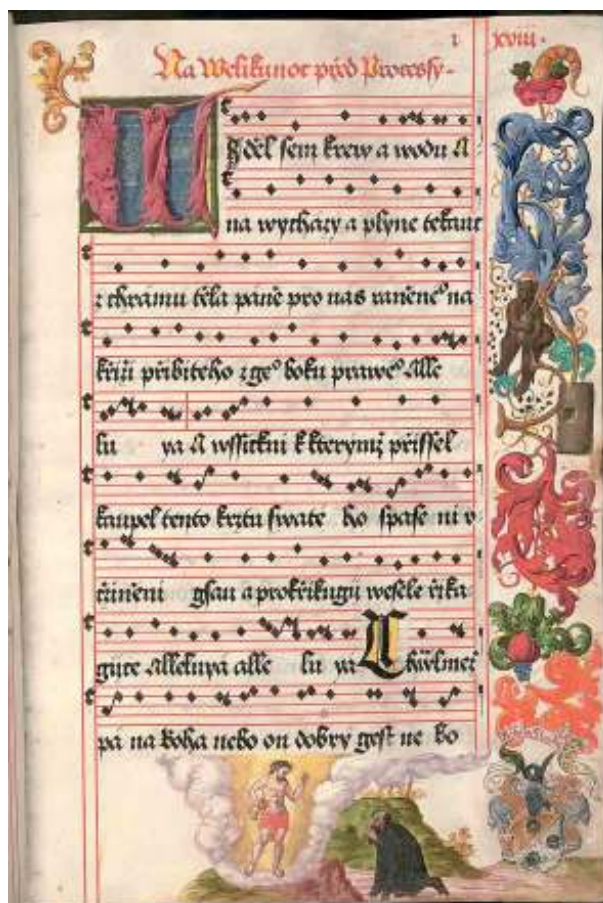 1 xviii.
Na Welikunoc před Processy.
Uděl sem krew a wodu A
na wychazy a plyne tekauc
z chramu těla paně pro nas raněneº na
křiži přibiteho z geº boku praweº Alle
lu ya A wssickni k kterymž přissel
kaupel tento krztu swate ho spase ni v
činěni gsau a prokřikugij wesele řika
gijce Alleluya alle lu ya A
pa na boha nebo on dobry gest ne bo